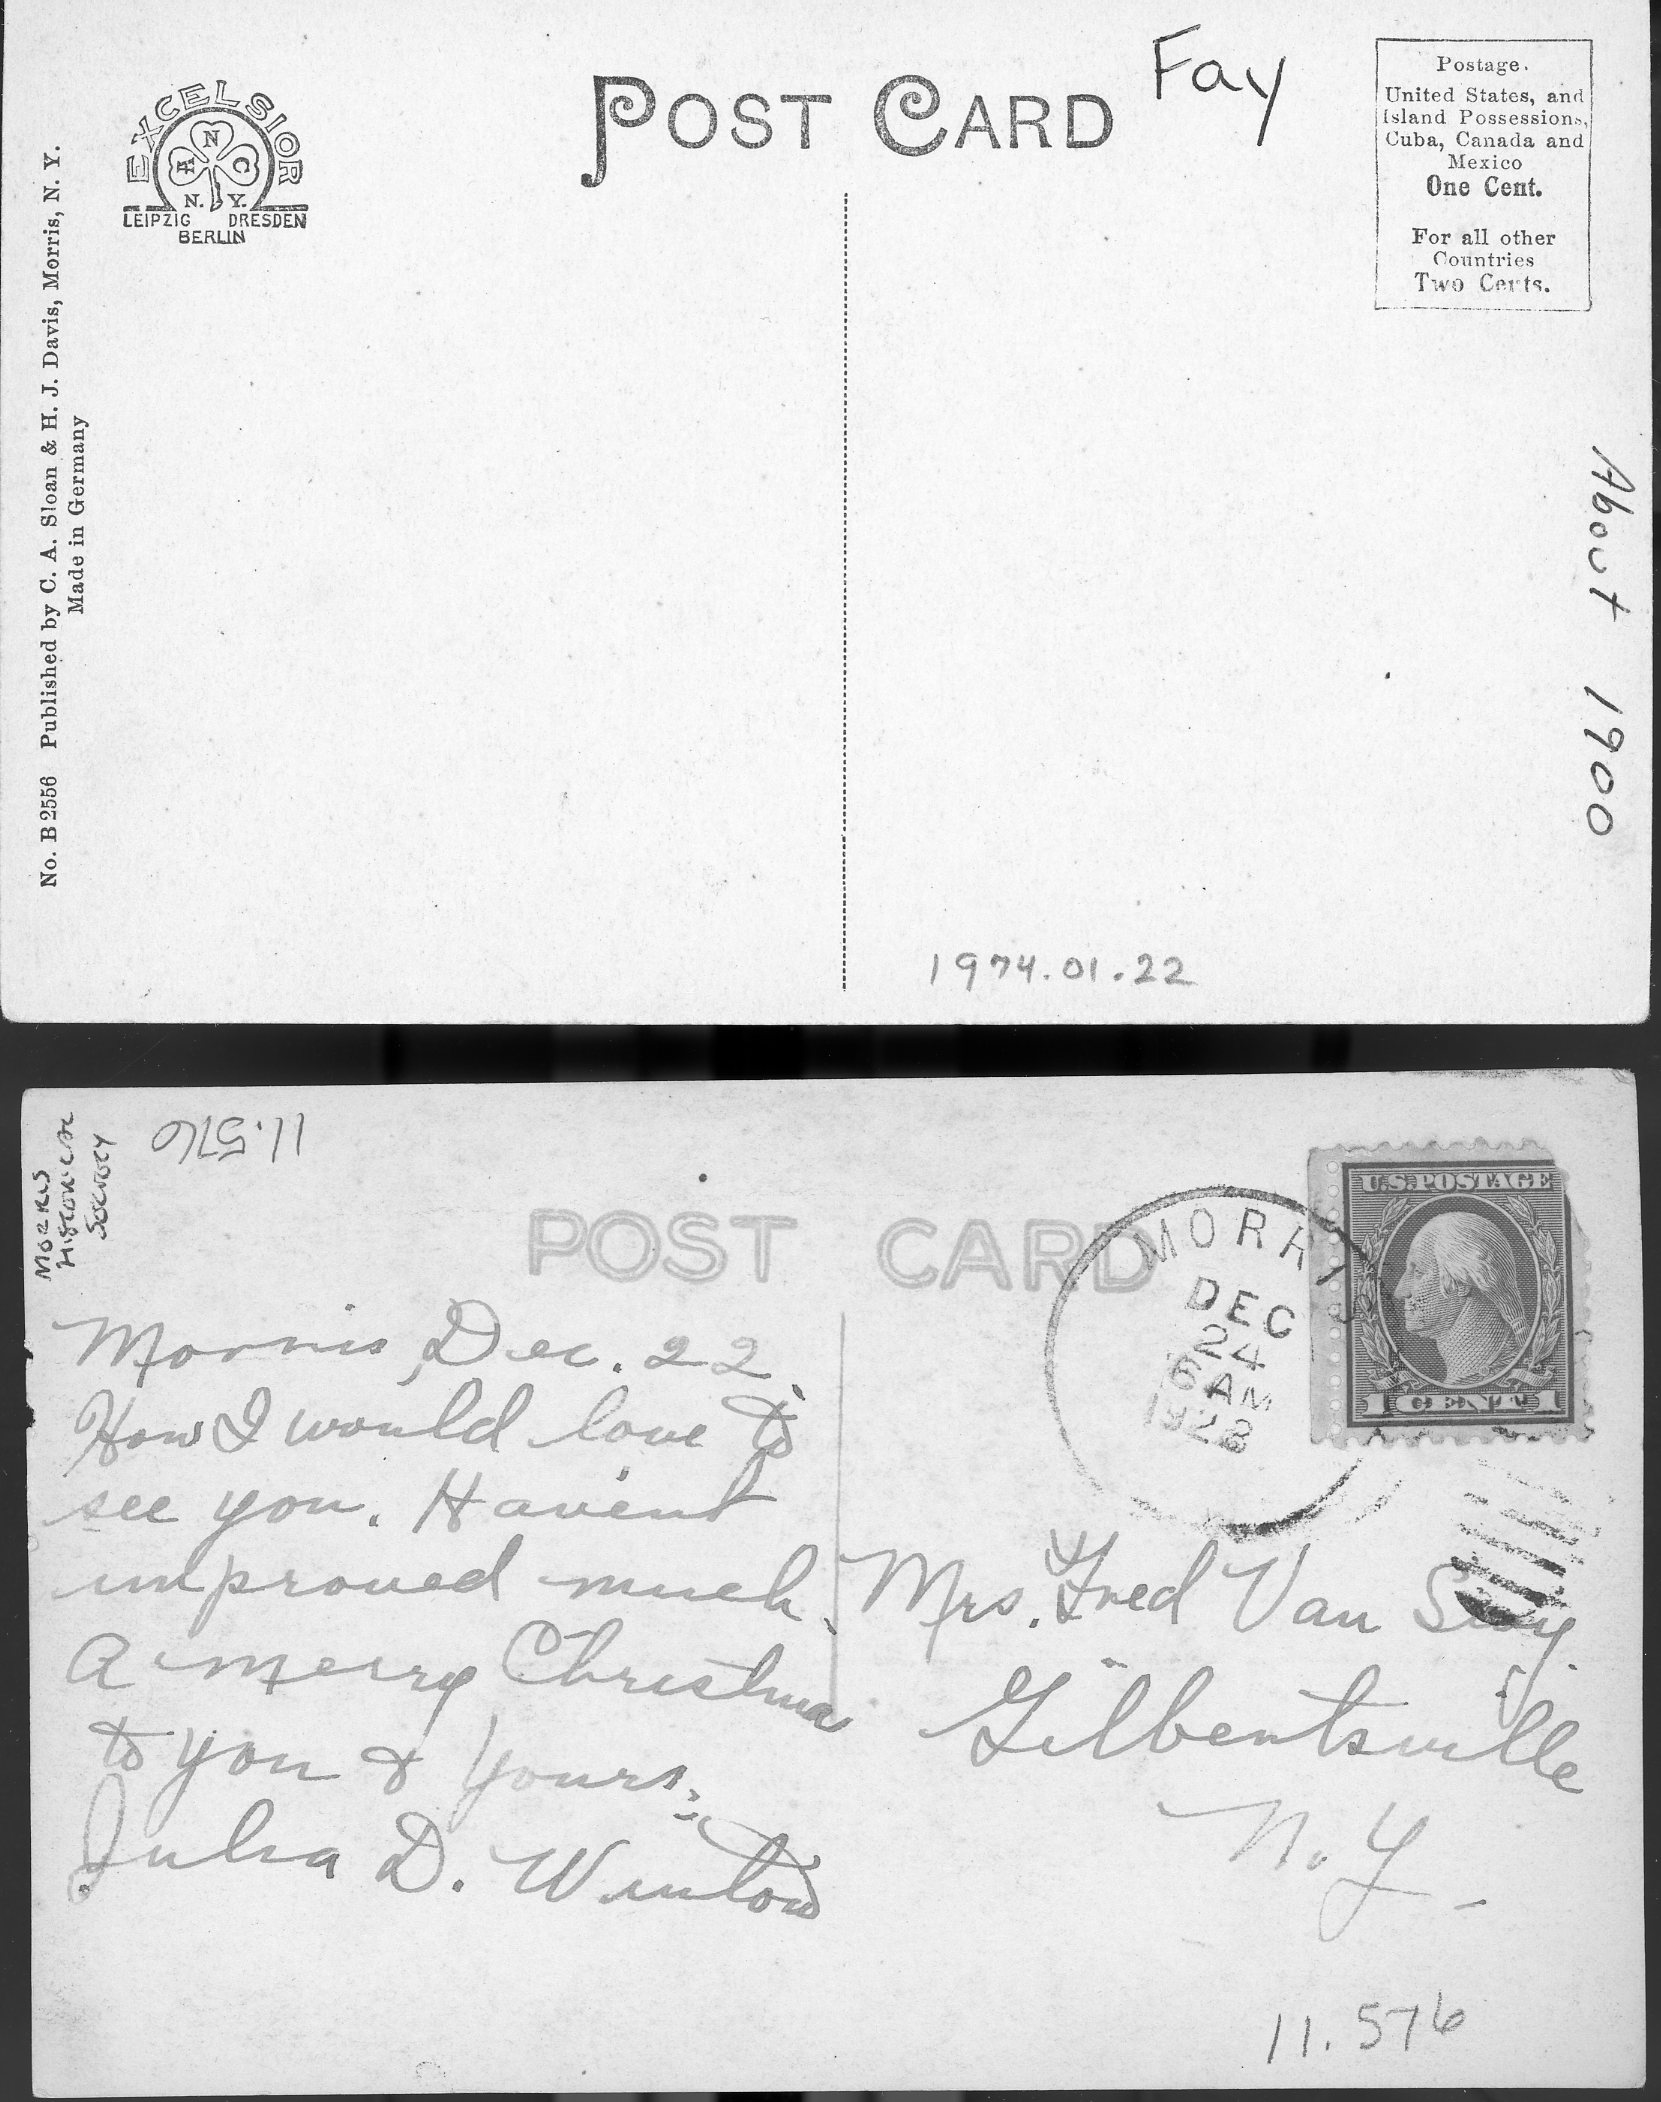 POST CARD
Fay
Postage.
United States, and
Island Possessions,
Cuba, Canada and
Mexico
One Cent.
For all other
Countries
Two Cents.
EXCELSIOR
A N C
N. Y.
LEIPZIG DRESDEN
BERLIN
No. B 2556 Published by C. A. Sloan & H. J. Davis, Morris, N. Y.
Made in Germany
About 1900
1974.01.22
MORRIS
HISTORICAL
SOCIETY
11.576
POST CARD
MORRIS
DEC
24
6 AM
U.S. POSTAGE
1 CENT 1
Morris, Dec. 22.
How I would love to
see you. Havent
improved much.
A merry Christmas
to you & yours.
Julia D. Winton
Mrs. Fred Van
Gilbertsville
N. Y.
11.576